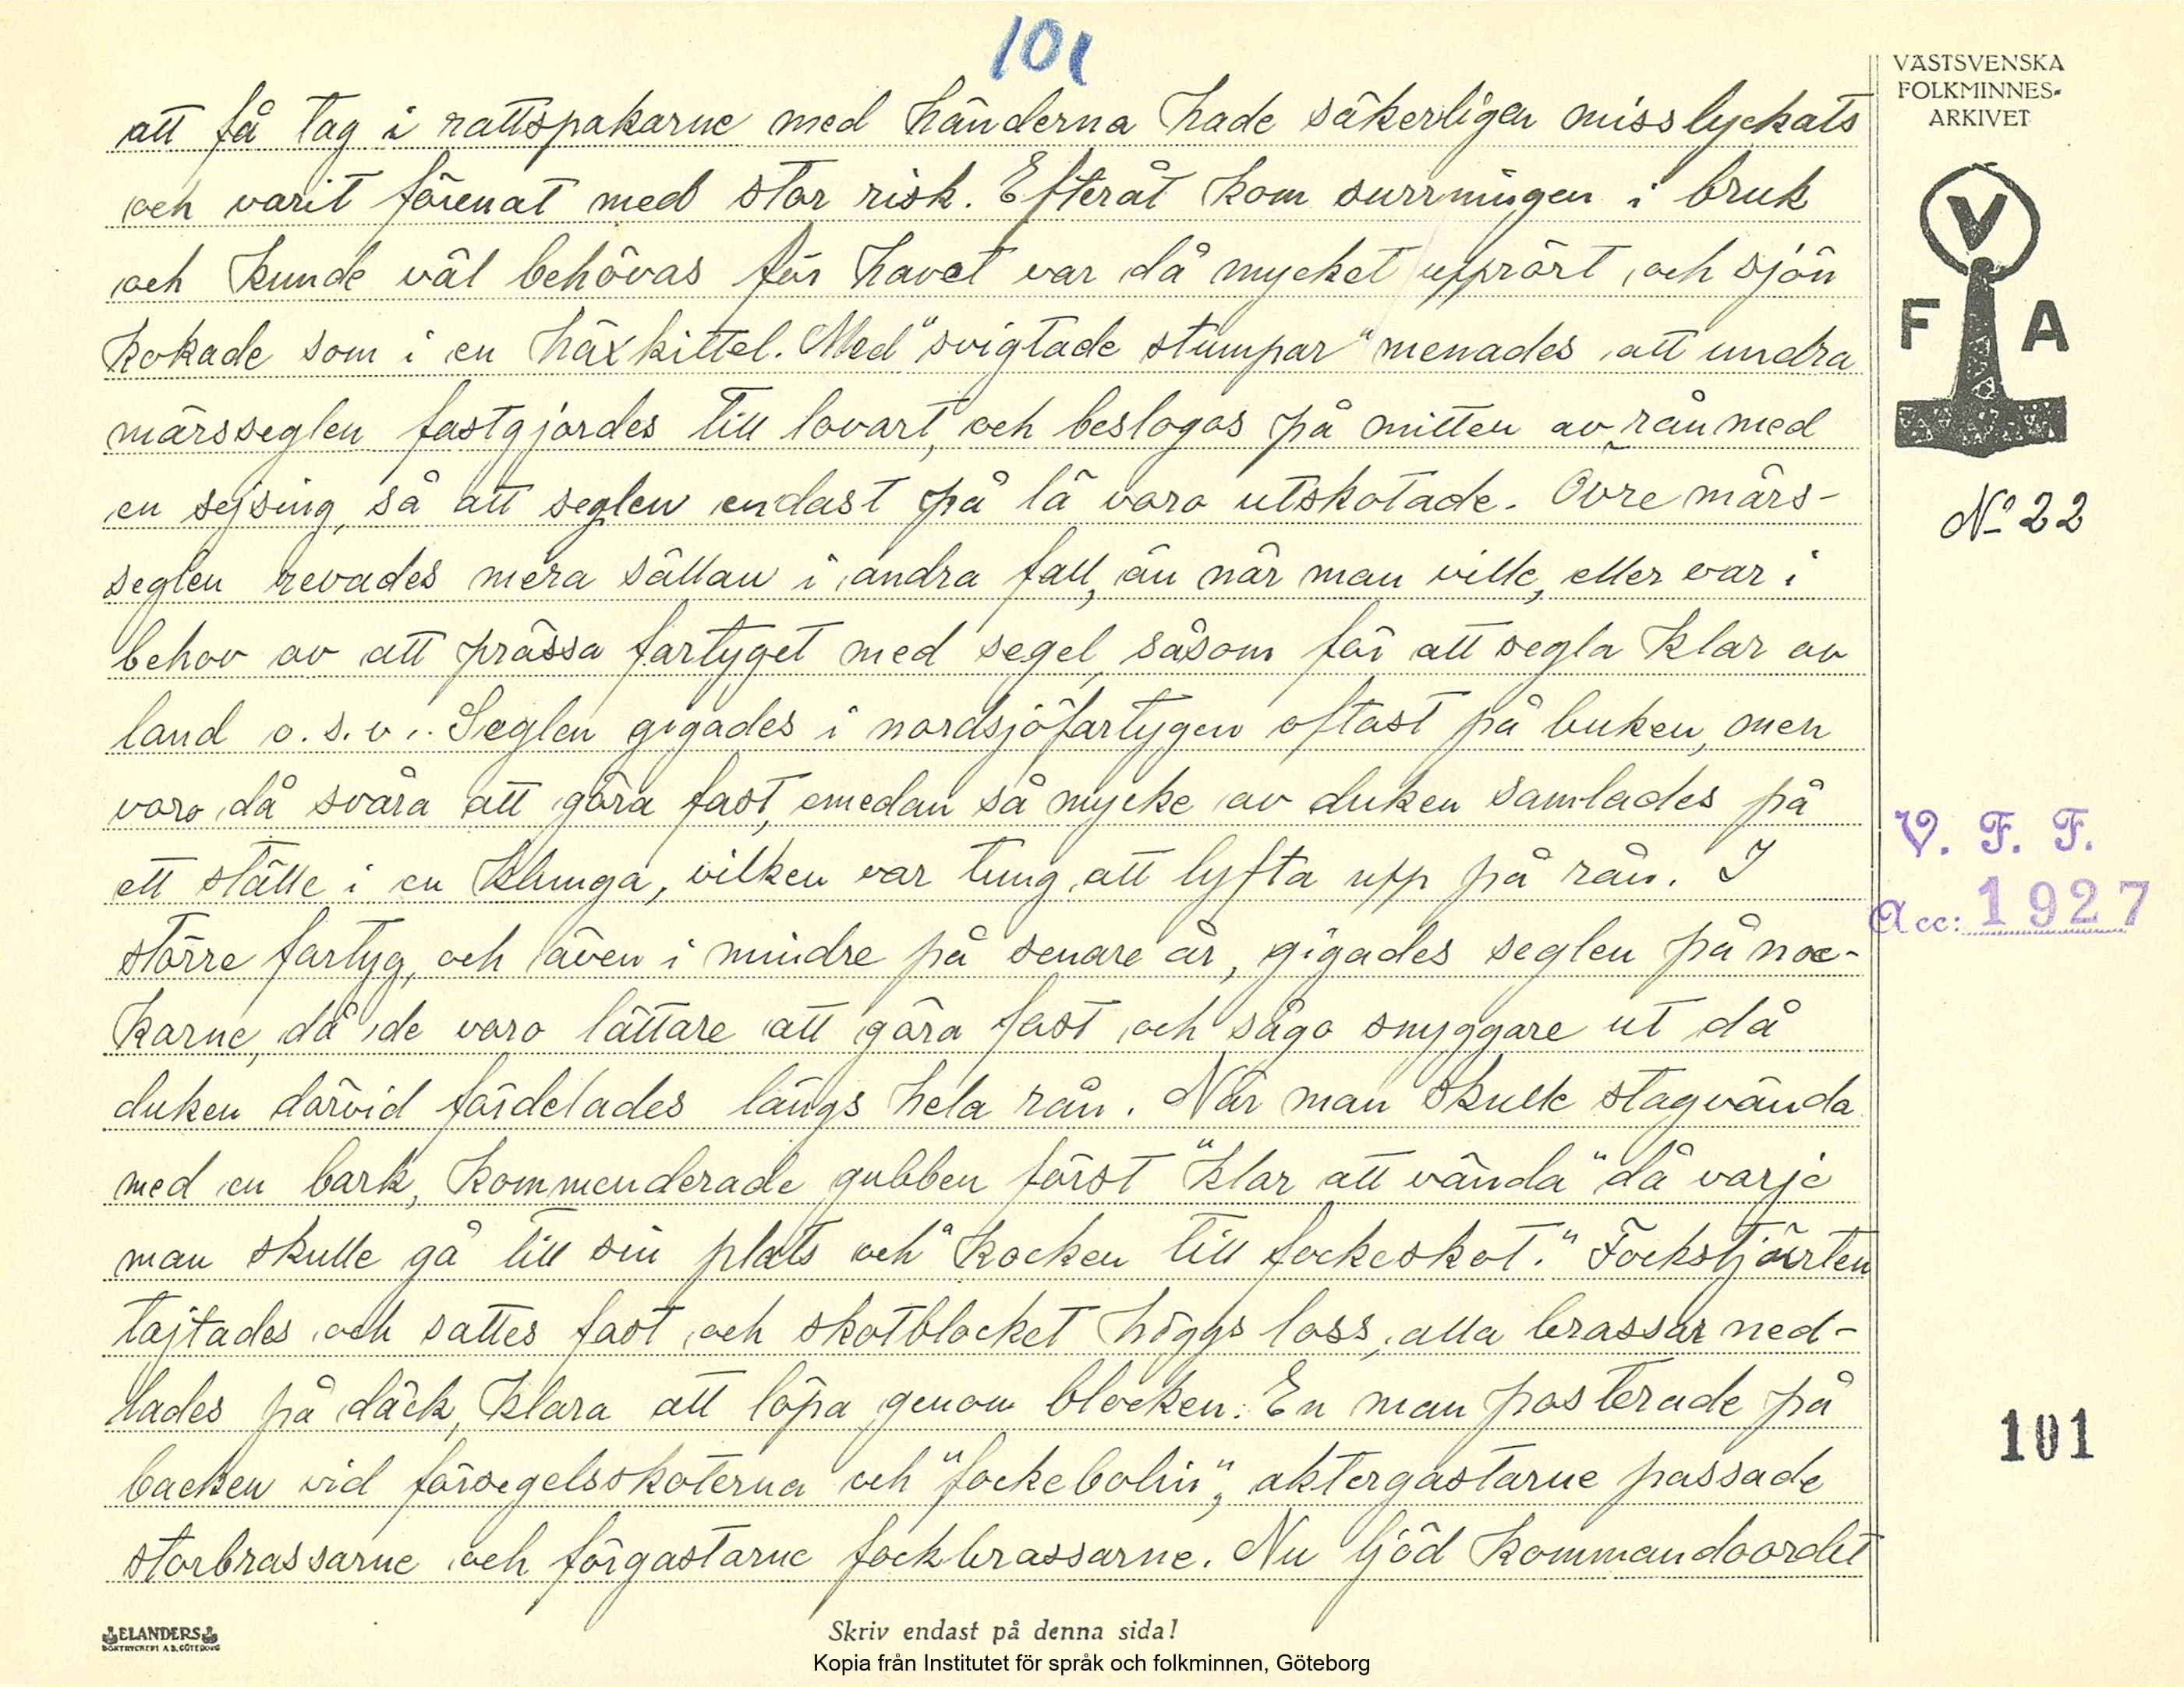 101
att få tag i rattspakarne med händerna hade säkerligen misslyckats
och varit förenat med stor risk. Efteråt kom surrningen i bruk
och kunde väl behövas för havet var då mycket upprört och sjön
kokade som i en häxkittel. Med "svigtade stumpar" menades att undra
märsseglen fastgjordes till lovart, och beslogos på mitten av rån med
en sejsing, så att seglen endast på lä voro utskotade. Övre märs-
seglen revades mera sällan i andra fall, än när man ville, eller var i
behov av att prässa fartyget med segel, såsom för att segla klar av
land o.s.v.. Seglen gigades i nordsjöfartygen oftast på buken, men
voro då svåra att göra fast, emedan så mycke av duken samlades på
ett ställe i en klunga, vilken var tung att lyfta upp på rån. I
större fartyg, och även i mindre på senare år, gigades seglen på noc-
karne, då de voro lättare att göra fast och sågo snyggare ut då
duken därvid fördelades längs hela rån. När man skulle stagvända
med en bark, kommenderade gubben först "klar att vända" då varje
man skulle gå till sin plats och "kocken till fockeskot." Fockstjärten
tajtades och sattes fast och skotblocket höggs loss, alla brassar ned-
lades på däck, klara att löpa genom blocken. En man posterade på
backen vid försegelsskoterna och "fockebolin", aktergastarne passade
storbrassarne och förgastarne fockbrassarne. Nu ljöd kommandoordet
VÄSTSVENSKA
FOLKMINNES-
ARKIVET
V
F A
No 22
V. F. F.
Acc: 1927
101
ELANDERS
BOKTRYCKERI A.B. GÖTEBORG
Skriv endast på denna sida!
Kopia från Institutet för språk och folkminnen, Göteborg